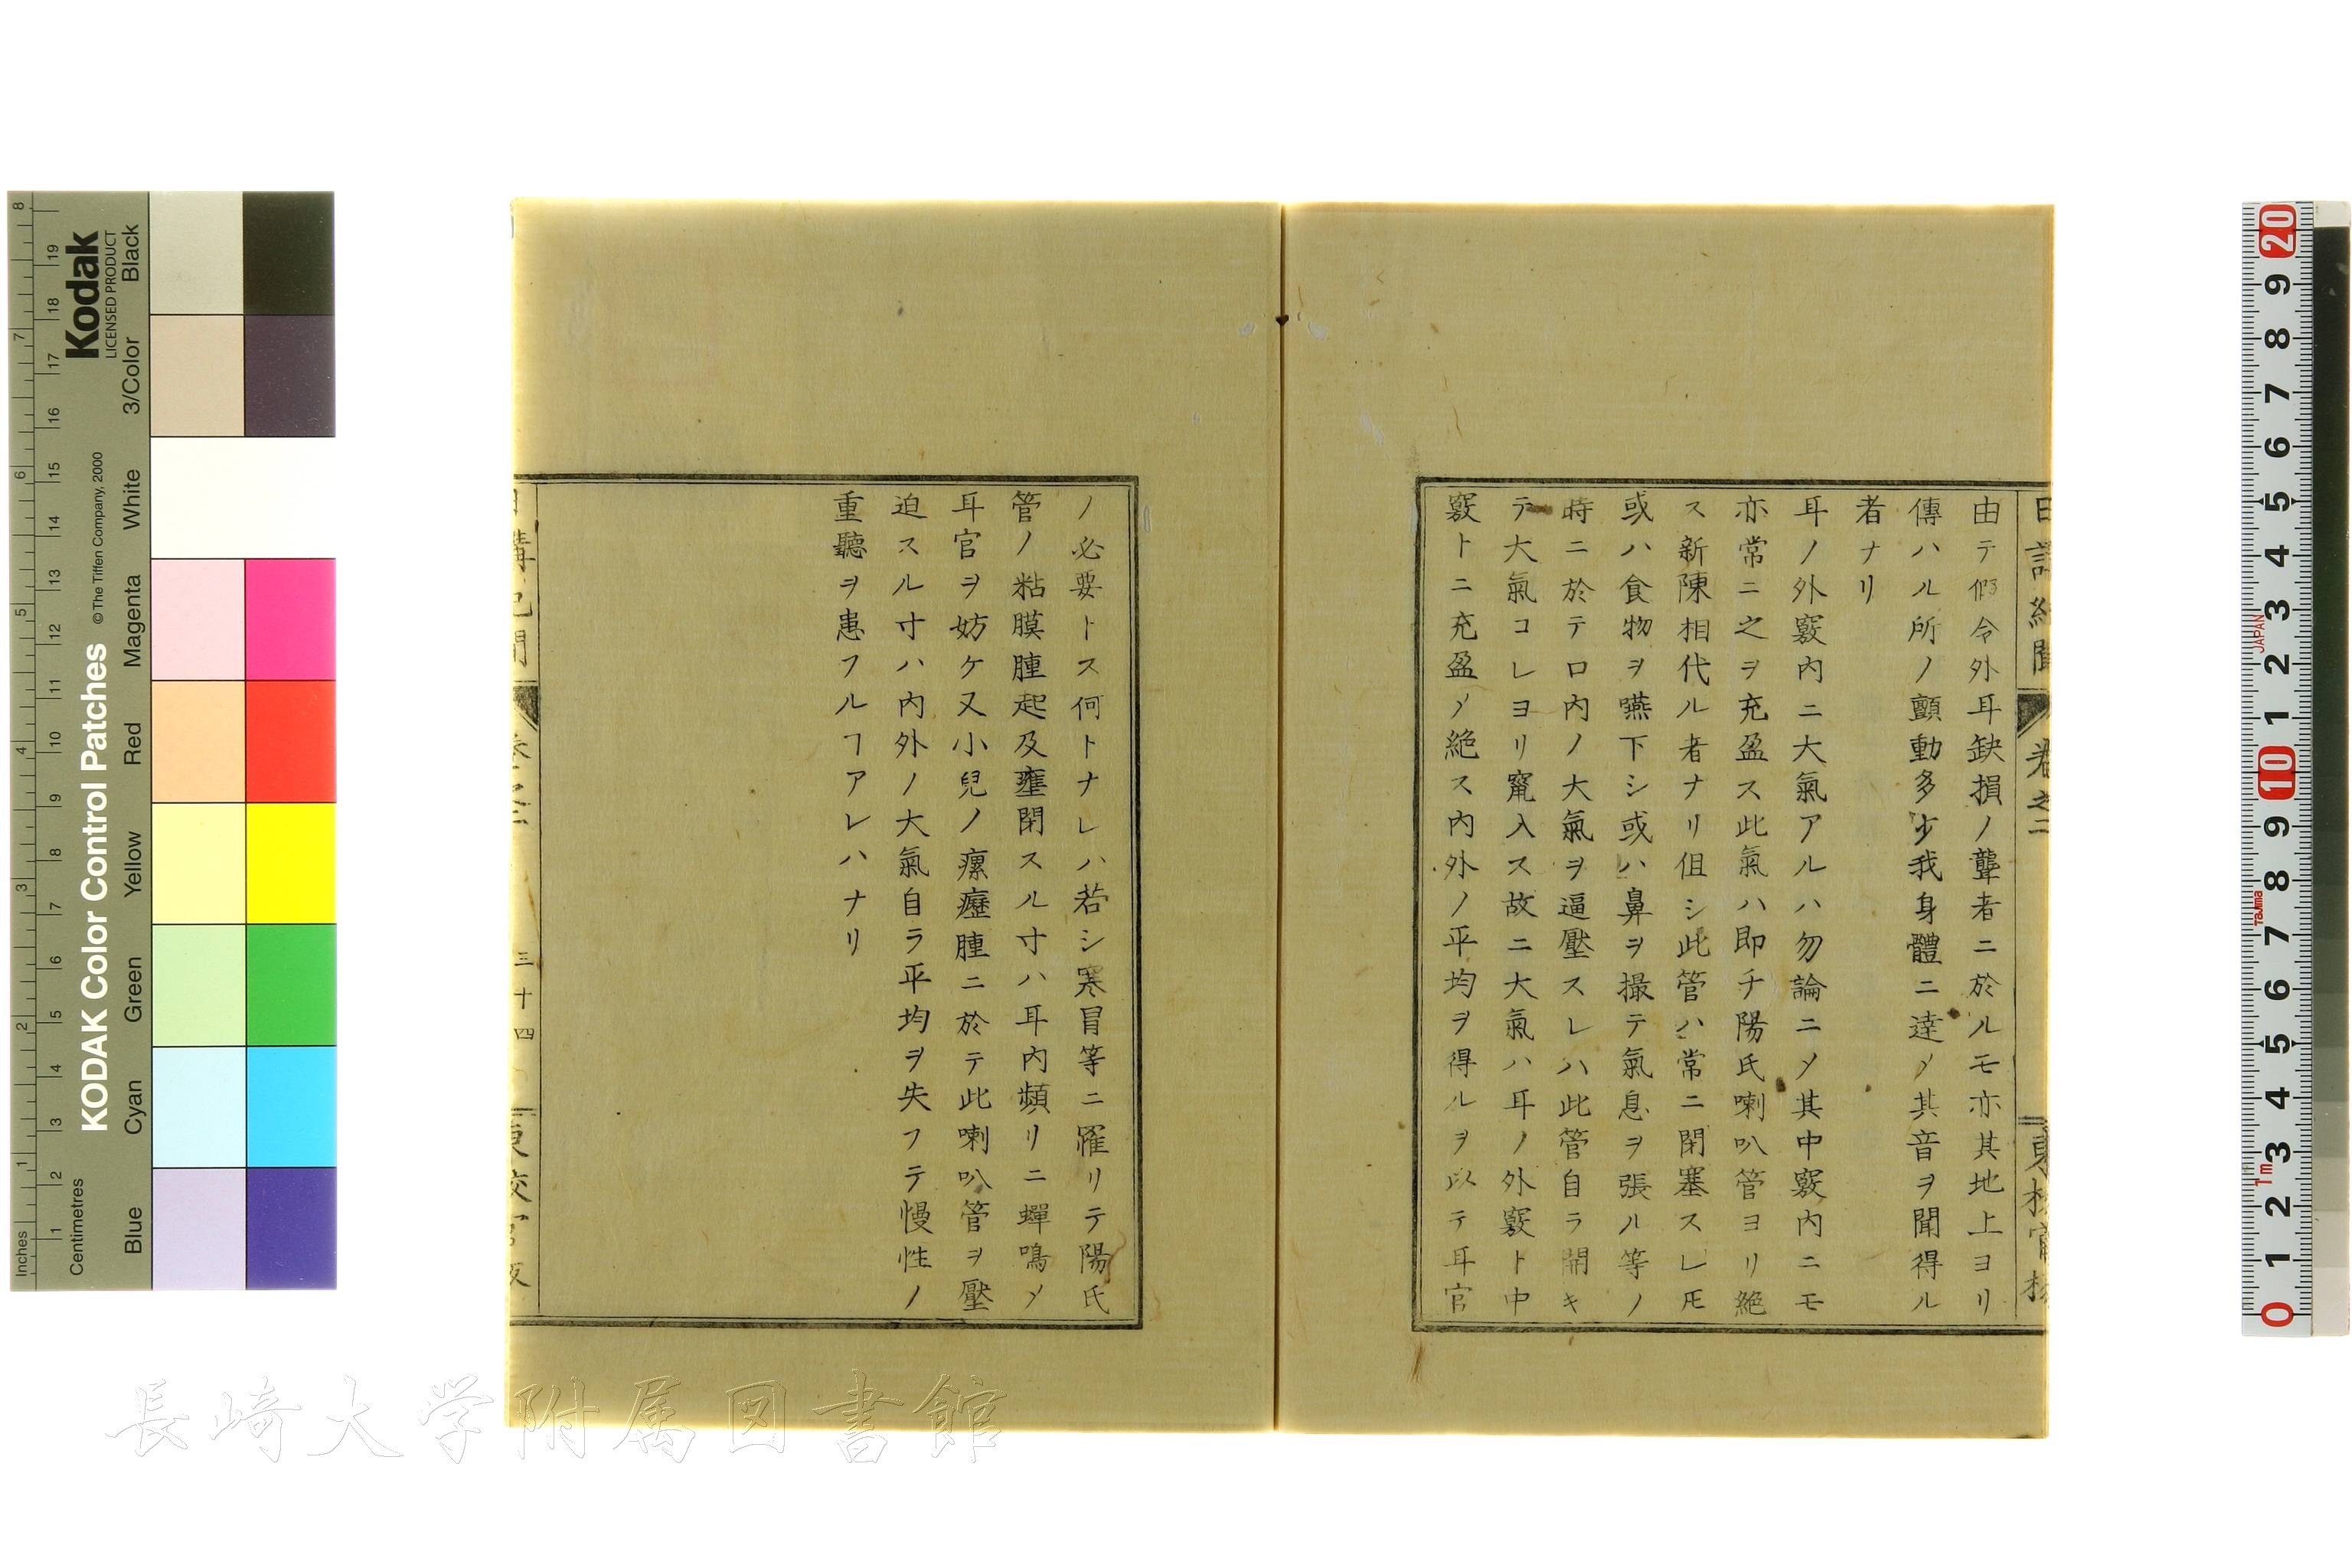 由テ假令外耳缺損ノ聾者ニ於ルモ亦其地上ヨリ
傳ハル所ノ顫動多少我身體ニ達〆其音ヲ聞得ル
者ナリ
耳ノ外竅內ニ大氣アルハ勿論ニ〆其中竅內ニモ
亦常ニ之ヲ充盈ス此氣ハ即チ陽氏喇叭管ヨリ絶
ス新陳相代ル者ナリ但シ此管ハ常ニ閉塞スレ𪜈
或ハ食物ヲ嚥下シ或ハ鼻ヲ撮テ氣息ヲ張ル等ノ
時ニ於テ口內ノ大氣ヲ逼壓スレハ此管自ラ開キ
テ大氣コレヨリ竄入ス故ニ大氣ハ耳ノ外竅ト中
竅トニ充盈〆絶ス內外ノ平均ヲ得ルヲ以テ耳官
ノ必要トス何トナレハ若シ寒冒等ニ罹リテ陽氏
管ノ粘膜腫起及壅閉スル寸ハ耳內頻リニ蟬鳴〆
耳官ヲ妨ケ又小兒ノ瘰癧腫ニ於テ此喇叭管ヲ壓
迫スル寸ハ內外ノ大氣自ラ平均ヲ失フテ慢性ノ
重聽ヲ患フルヿアレハナリ
卷之二
三十四
長崎大学附属図書館
KODAK Color Control Patches
© The Tiffen Company, 2000
Kodak
LICENSED PRODUCT
Inches
Centimetres
Blue
Cyan
Green
Yellow
Red
Magenta
White
3/Color
Black
JAPAN
Tajima
1m